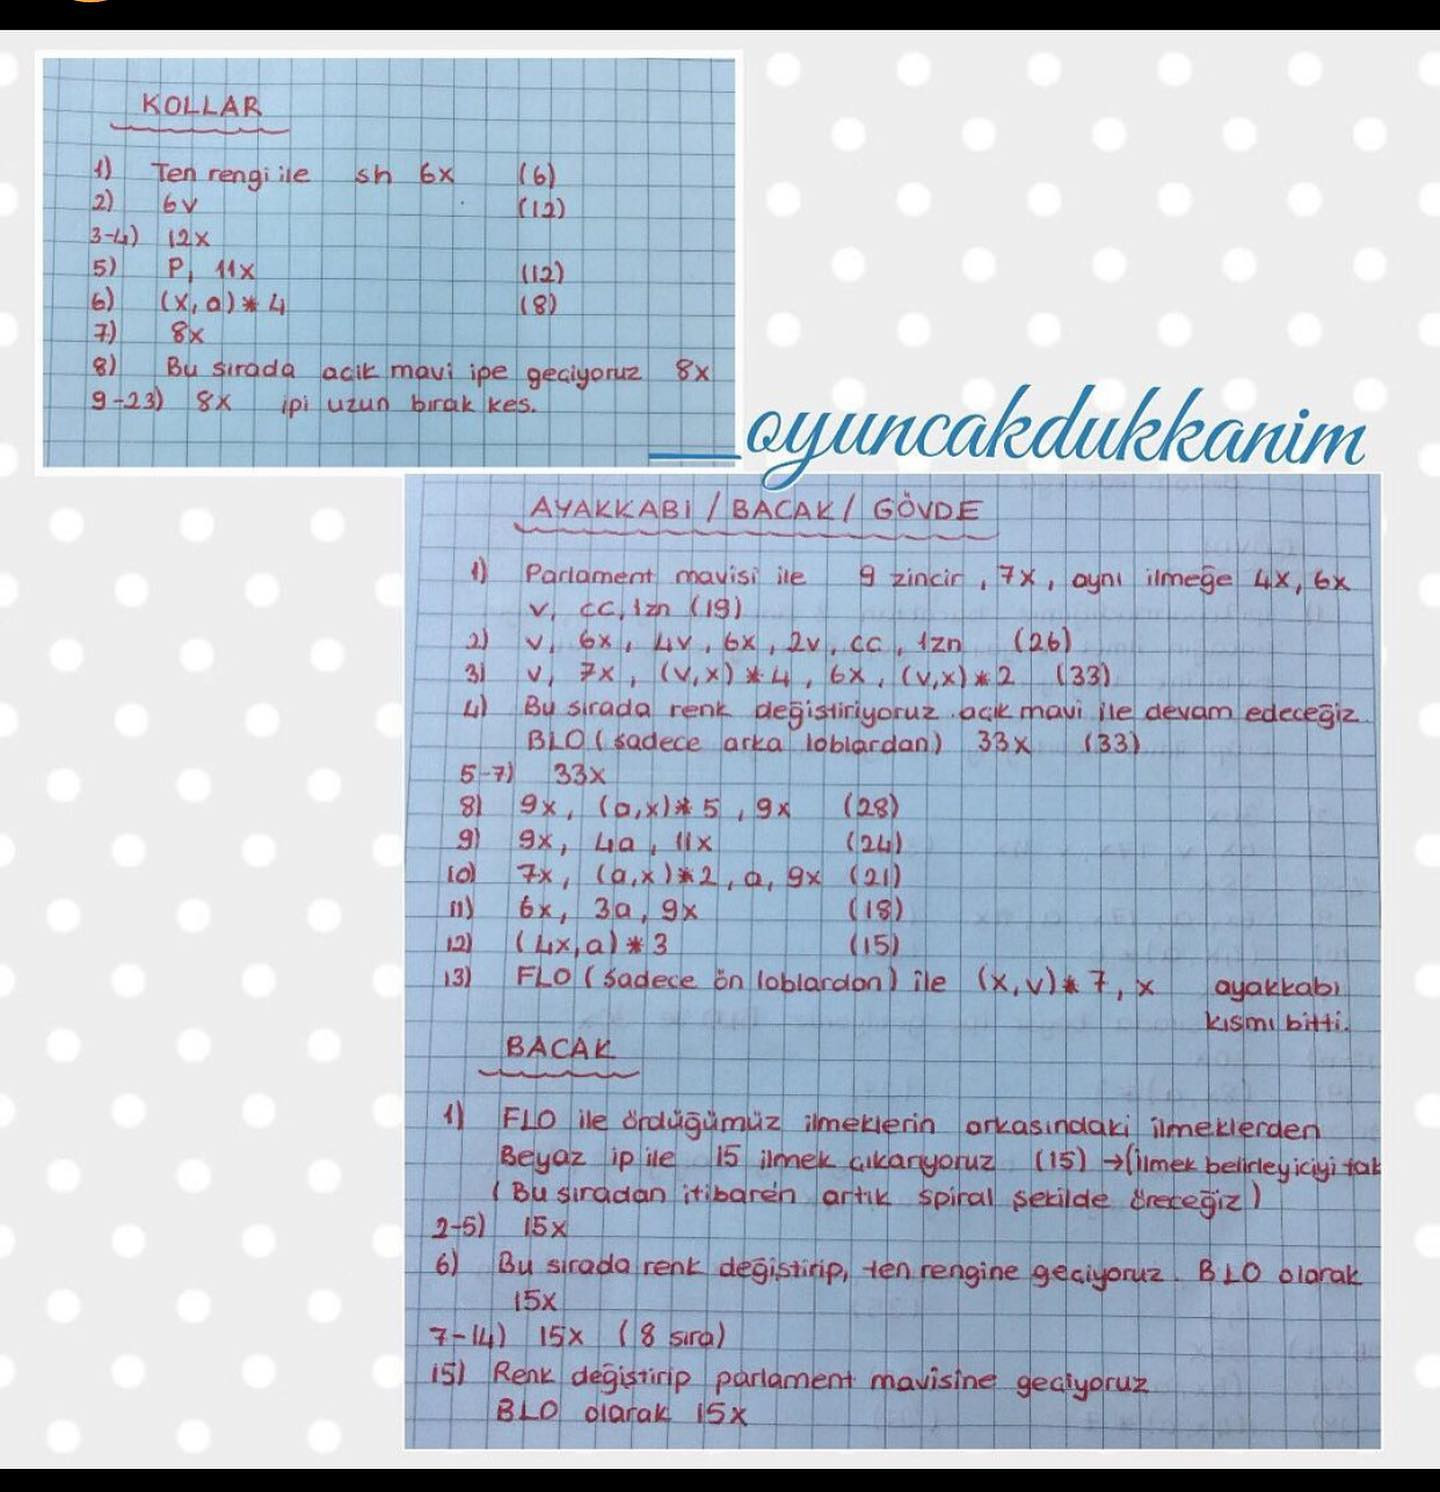 KOLLAR
1) Ten rengi ile sh 6x (6)
2) 6v (12)
3-4) 12x
5) P, 11x (12)
6) (x, a) * 4 (8)
7) 8x
8) Bu sırada acik mavi ipe geçiyoruz 8x
9-23) 8x ipi uzun bırak kes.
__oyuncakdukkanim
AYAKKABI / BACAK / GÖVDE
1) Parlament mavisi ile 9 zincir, 7x, aynı ilmeğe 4x, 6x
v, cc, 1zn (19)
2) v, 6x, 4v, 6x, 2v, cc, 1zn (26)
3) v, 7x, (v,x) * 4, 6x, (v,x) * 2 (33)
4) Bu sırada renk değiştiriyoruz açık mavi ile devam edeceğiz.
BLO (sadece arka loblardan) 33x (33)
5-7) 33x
8) 9x, (a,x)* 5, 9x (28)
9) 9x, 4a, 11x (24)
10) 7x, (a,x)*2, a, 9x (21)
11) 6x, 3a, 9x (18)
12) (4x,a) * 3 (15)
13) FLO (sadece ön loblardan) ile (x,v)* 7, x ayakkabı
kısmı bitti.
BACAK
1) FLO ile ördüğümüz ilmeklerin arkasındaki ilmeklerden
Beyaz ip ile 15 ilmek çıkarıyoruz (15) → (ilmek belirleyiciyi tak
(Bu sıradan itibaren artık spiral şekilde öreceğiz)
2-5) 15x
6) Bu sırada renk değiştirip, ten rengine geçiyoruz. BLO olarak
15x
7-14) 15x (8 sıra)
15) Renk değiştirip parlament mavisine geçiyoruz
BLO olarak 15x